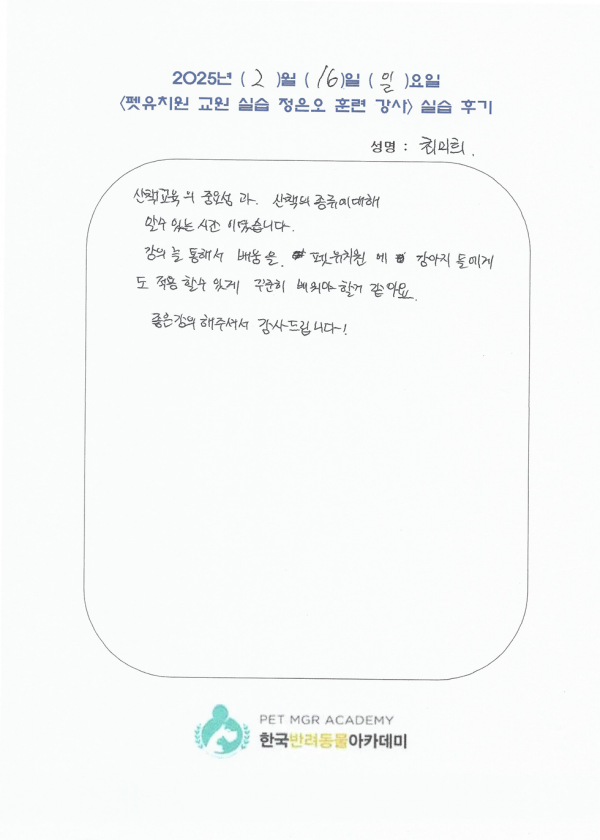 2025년 ( 2 )월 ( 16 )일 ( 일 )요일
<펫유치원 교원 실습 정은오 훈련 강사> 실습 후기
성명 : 최의희.
산책교육의 중요성 과. 산책의 종류에대해
알수 있는 시간 이었습니다.
강의 를 통해서 배움을. 펫유치원 에 강아지 들에게
도 적용 할수 있게 꾸준히 배워야 할거 같아요.
좋은강의 해주셔서 감사드립니다!
PET MGR ACADEMY
한국반려동물아카데미